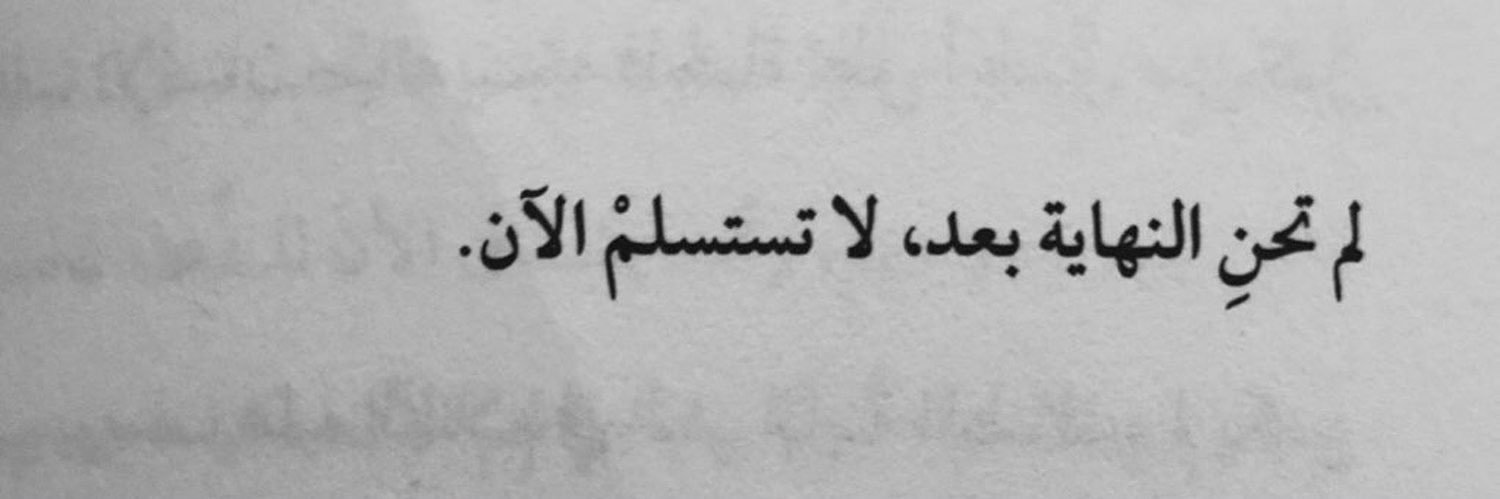 لم تحنِ النهاية بعد، لا تستسلمْ الآن.